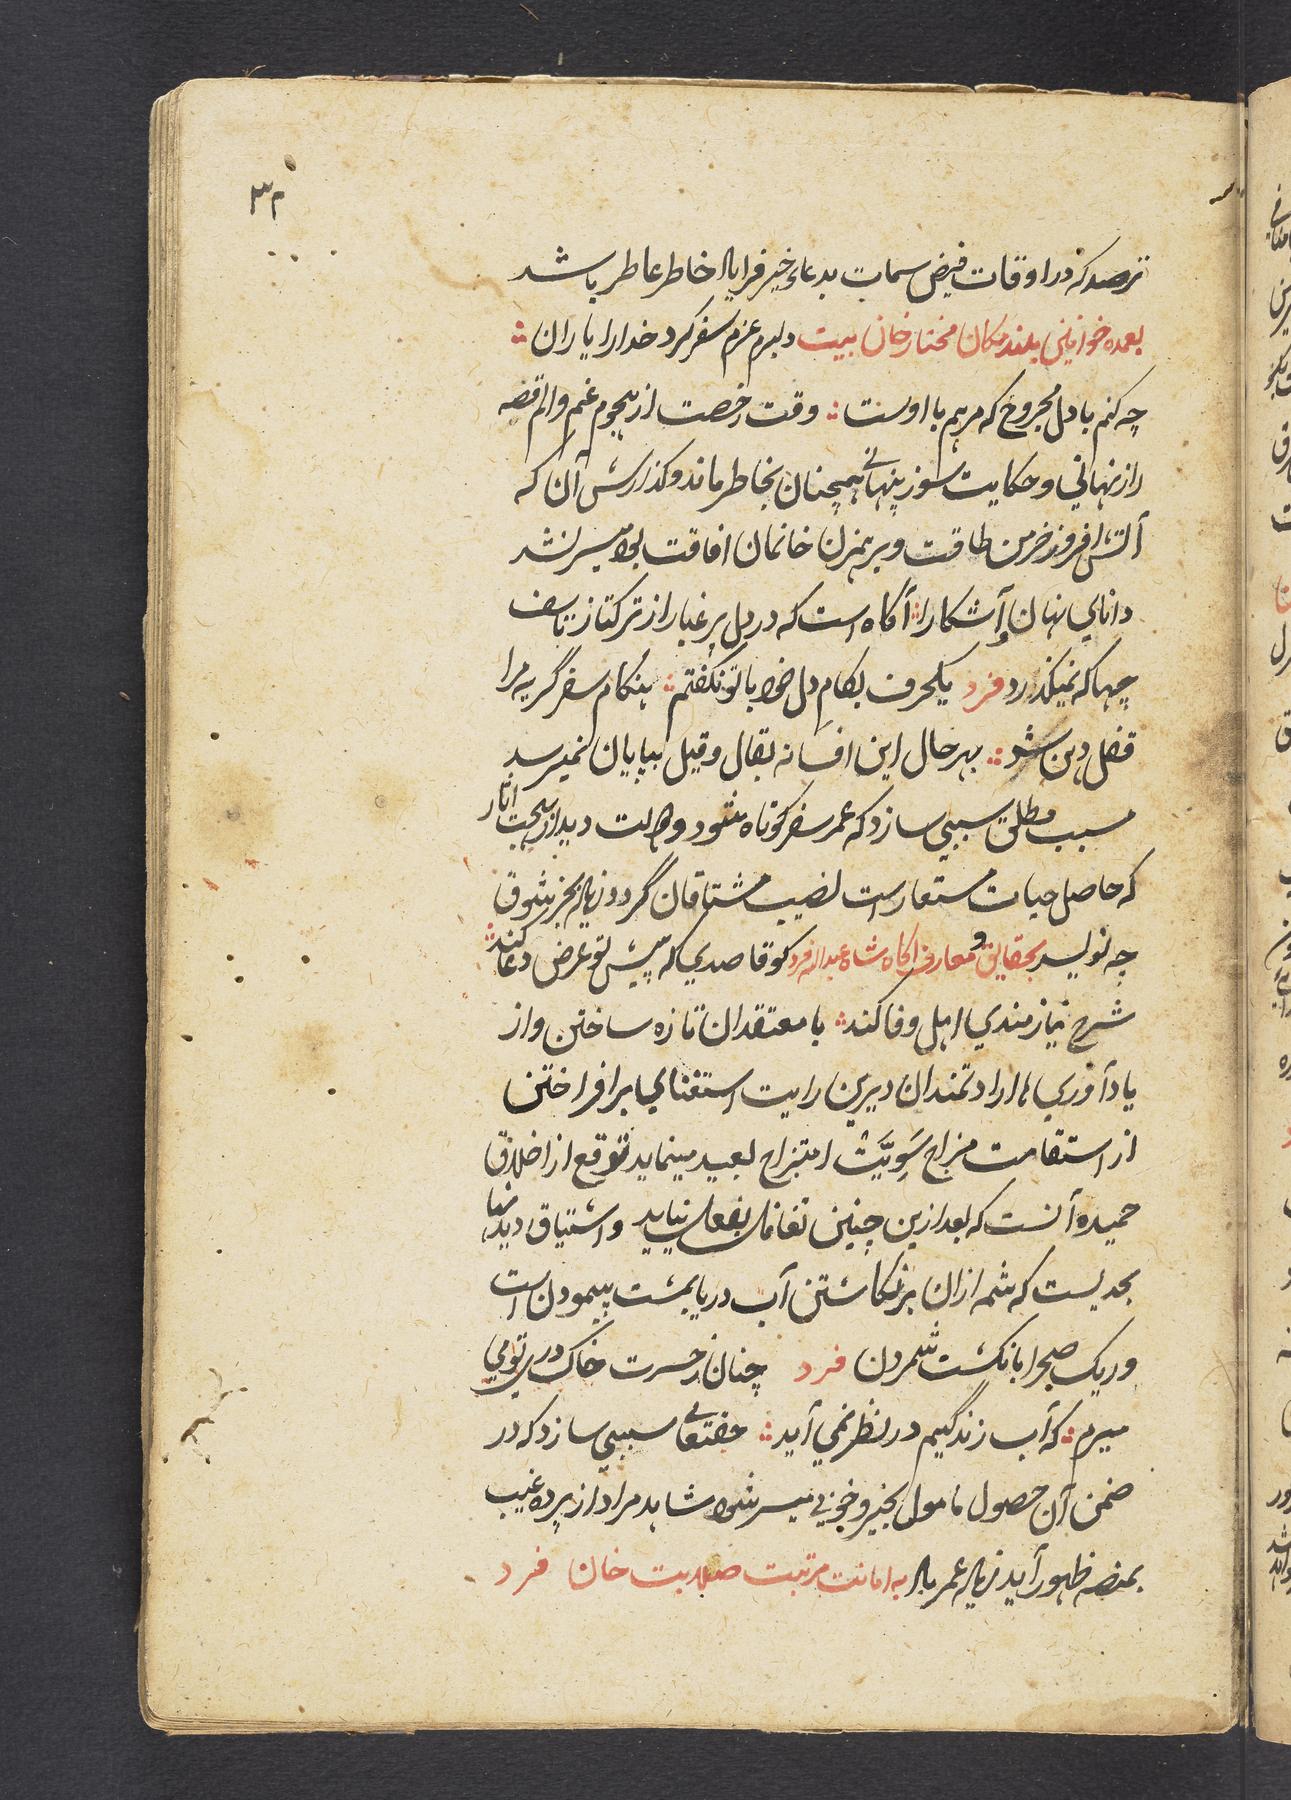 ۳۲
ترصد که در اوقات فیض سمات بدعای خیر فریاد خاطر عاطر باشد
بعمده خوانین بلند مکان مختار خان بیت دلبرم عزم سفر کرد خدا را یاران
چه کنم با دل مجروح که مرهم با اوست وقت رخصت از هجوم غم و الم قصه
راز نهانی و حکایت سوز پنهانی همچنان بخاطر ماند و گذارش آن که
آتش افروز خرمن طاقت و برهمزن خانمان افاقت بود میسر نشد
دانای نهان و آشکارا آگاه است که در دل پر غبار از ترکتاز تاسف
چها که نمیگذرد فرد یکحرف بکام دل خود با تو نگفتم هنگام سفر گریه مرا
قفل دهن شد بهرحال این افسانه بقال و قیل بپایان نمیرسد
مسبب مطلق سببی سازد که عمر سفر کوتاه شود و دولت دیدار بهجت آثار
که حاصل حیات مستعار است نصیب مشتاقان گردد زیاده بجز شوق
چه نویسد بحقایق و معارف آگاه شاه عبدالله فرد کو قاصدی که پیش تو عرض دعا کند
شرح نیازمندی اهل وفا کند با معتقدان تازه ساختن و از
یادآوری ارادتمندان دیرین رایت استغنای برافراختن
از استقامت مزاج سویت امتزاج بعید مینماید توقع از اخلاق
حمیده آنست که بعد ازین چنین تغافل بفعل نیاید و اشتیاق دیدنها
بحدیست که شمه ازان برنگاشتن آب دریا بمشت پیمودن است
و ریک صحرا بانکشت شمردن فرد چنان در حسرت خاک در تو می
میرم که آب زندگیم در نظر نمی آید حقتعالی سببی سازد که در
ضمن آن حصول مامول بخیر و خوبی میسر شود شاهد مراد از پرده غیب
بمنصه ظهور آید زیاده عمر باد به امانت مرتبت صلابت خان فرد